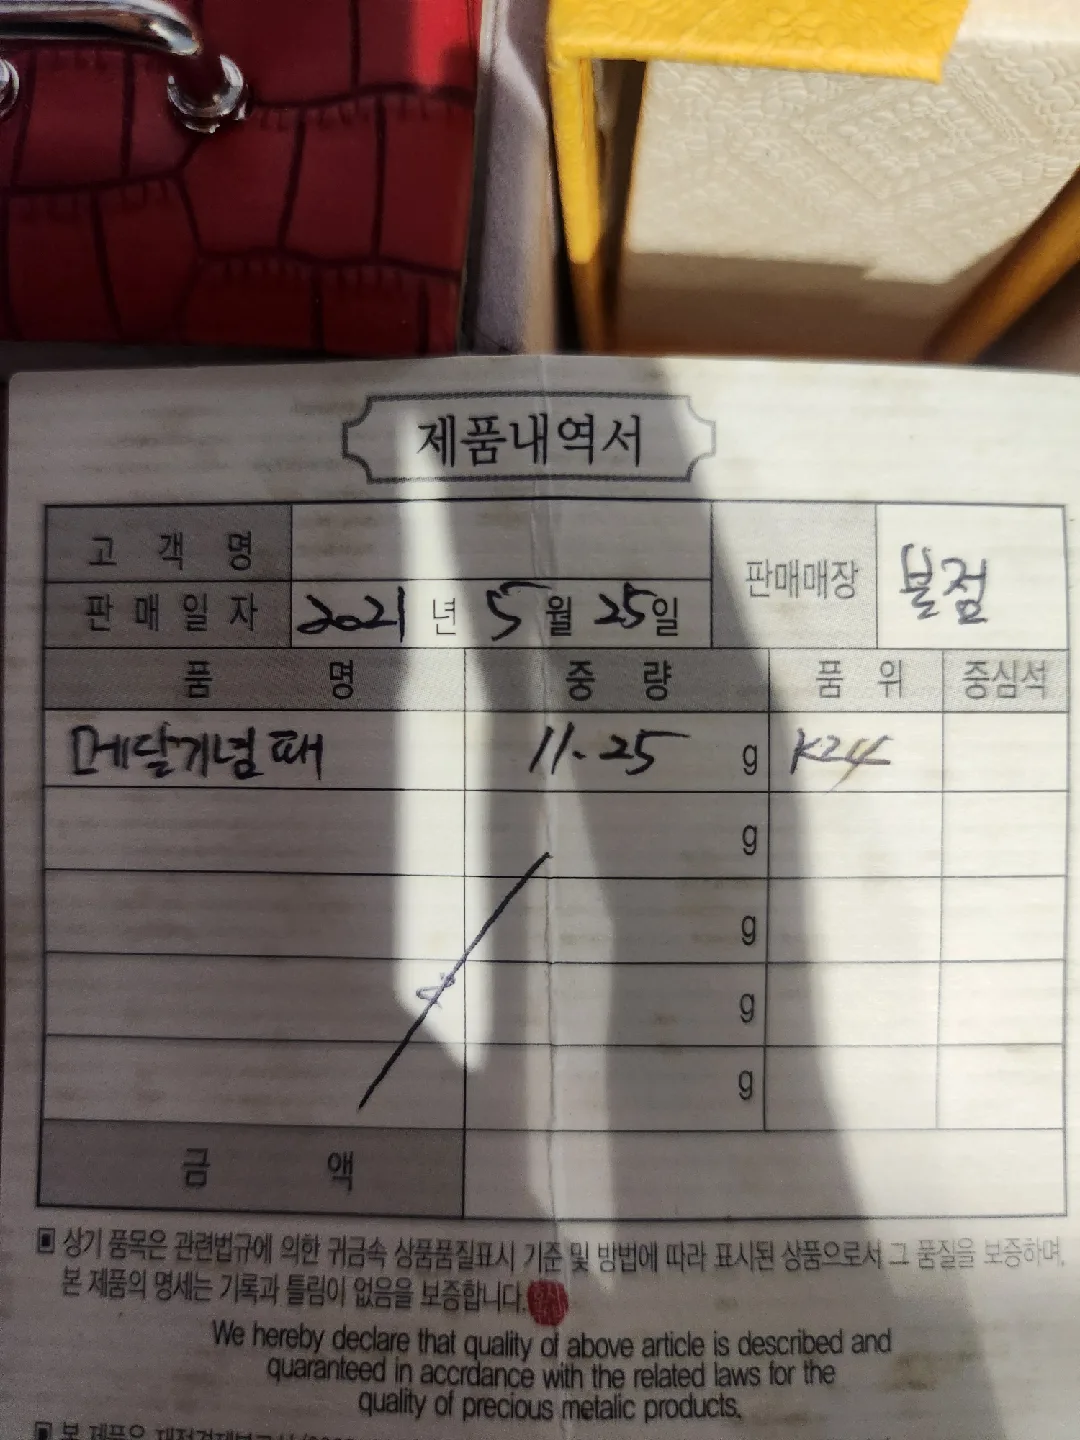 제품내역서
고객명
판매매장 본점
판매일자 2021년 5월 25일
품명 중량 품위 중심석
메달기념패 11.25 g K24
g
g
g
g
금액
▣ 상기 품목은 관련법규에 의한 귀금속 상품품질표시 기준 및 방법에 따라 표시된 상품으로서 그 품질을 보증하며,
본 제품의 명세는 기록과 틀림이 없음을 보증합니다.
We hereby declare that quality of above article is described and
quaranteed in accrdance with the related laws for the
quality of precious metalic products.
▣ 본 제품은